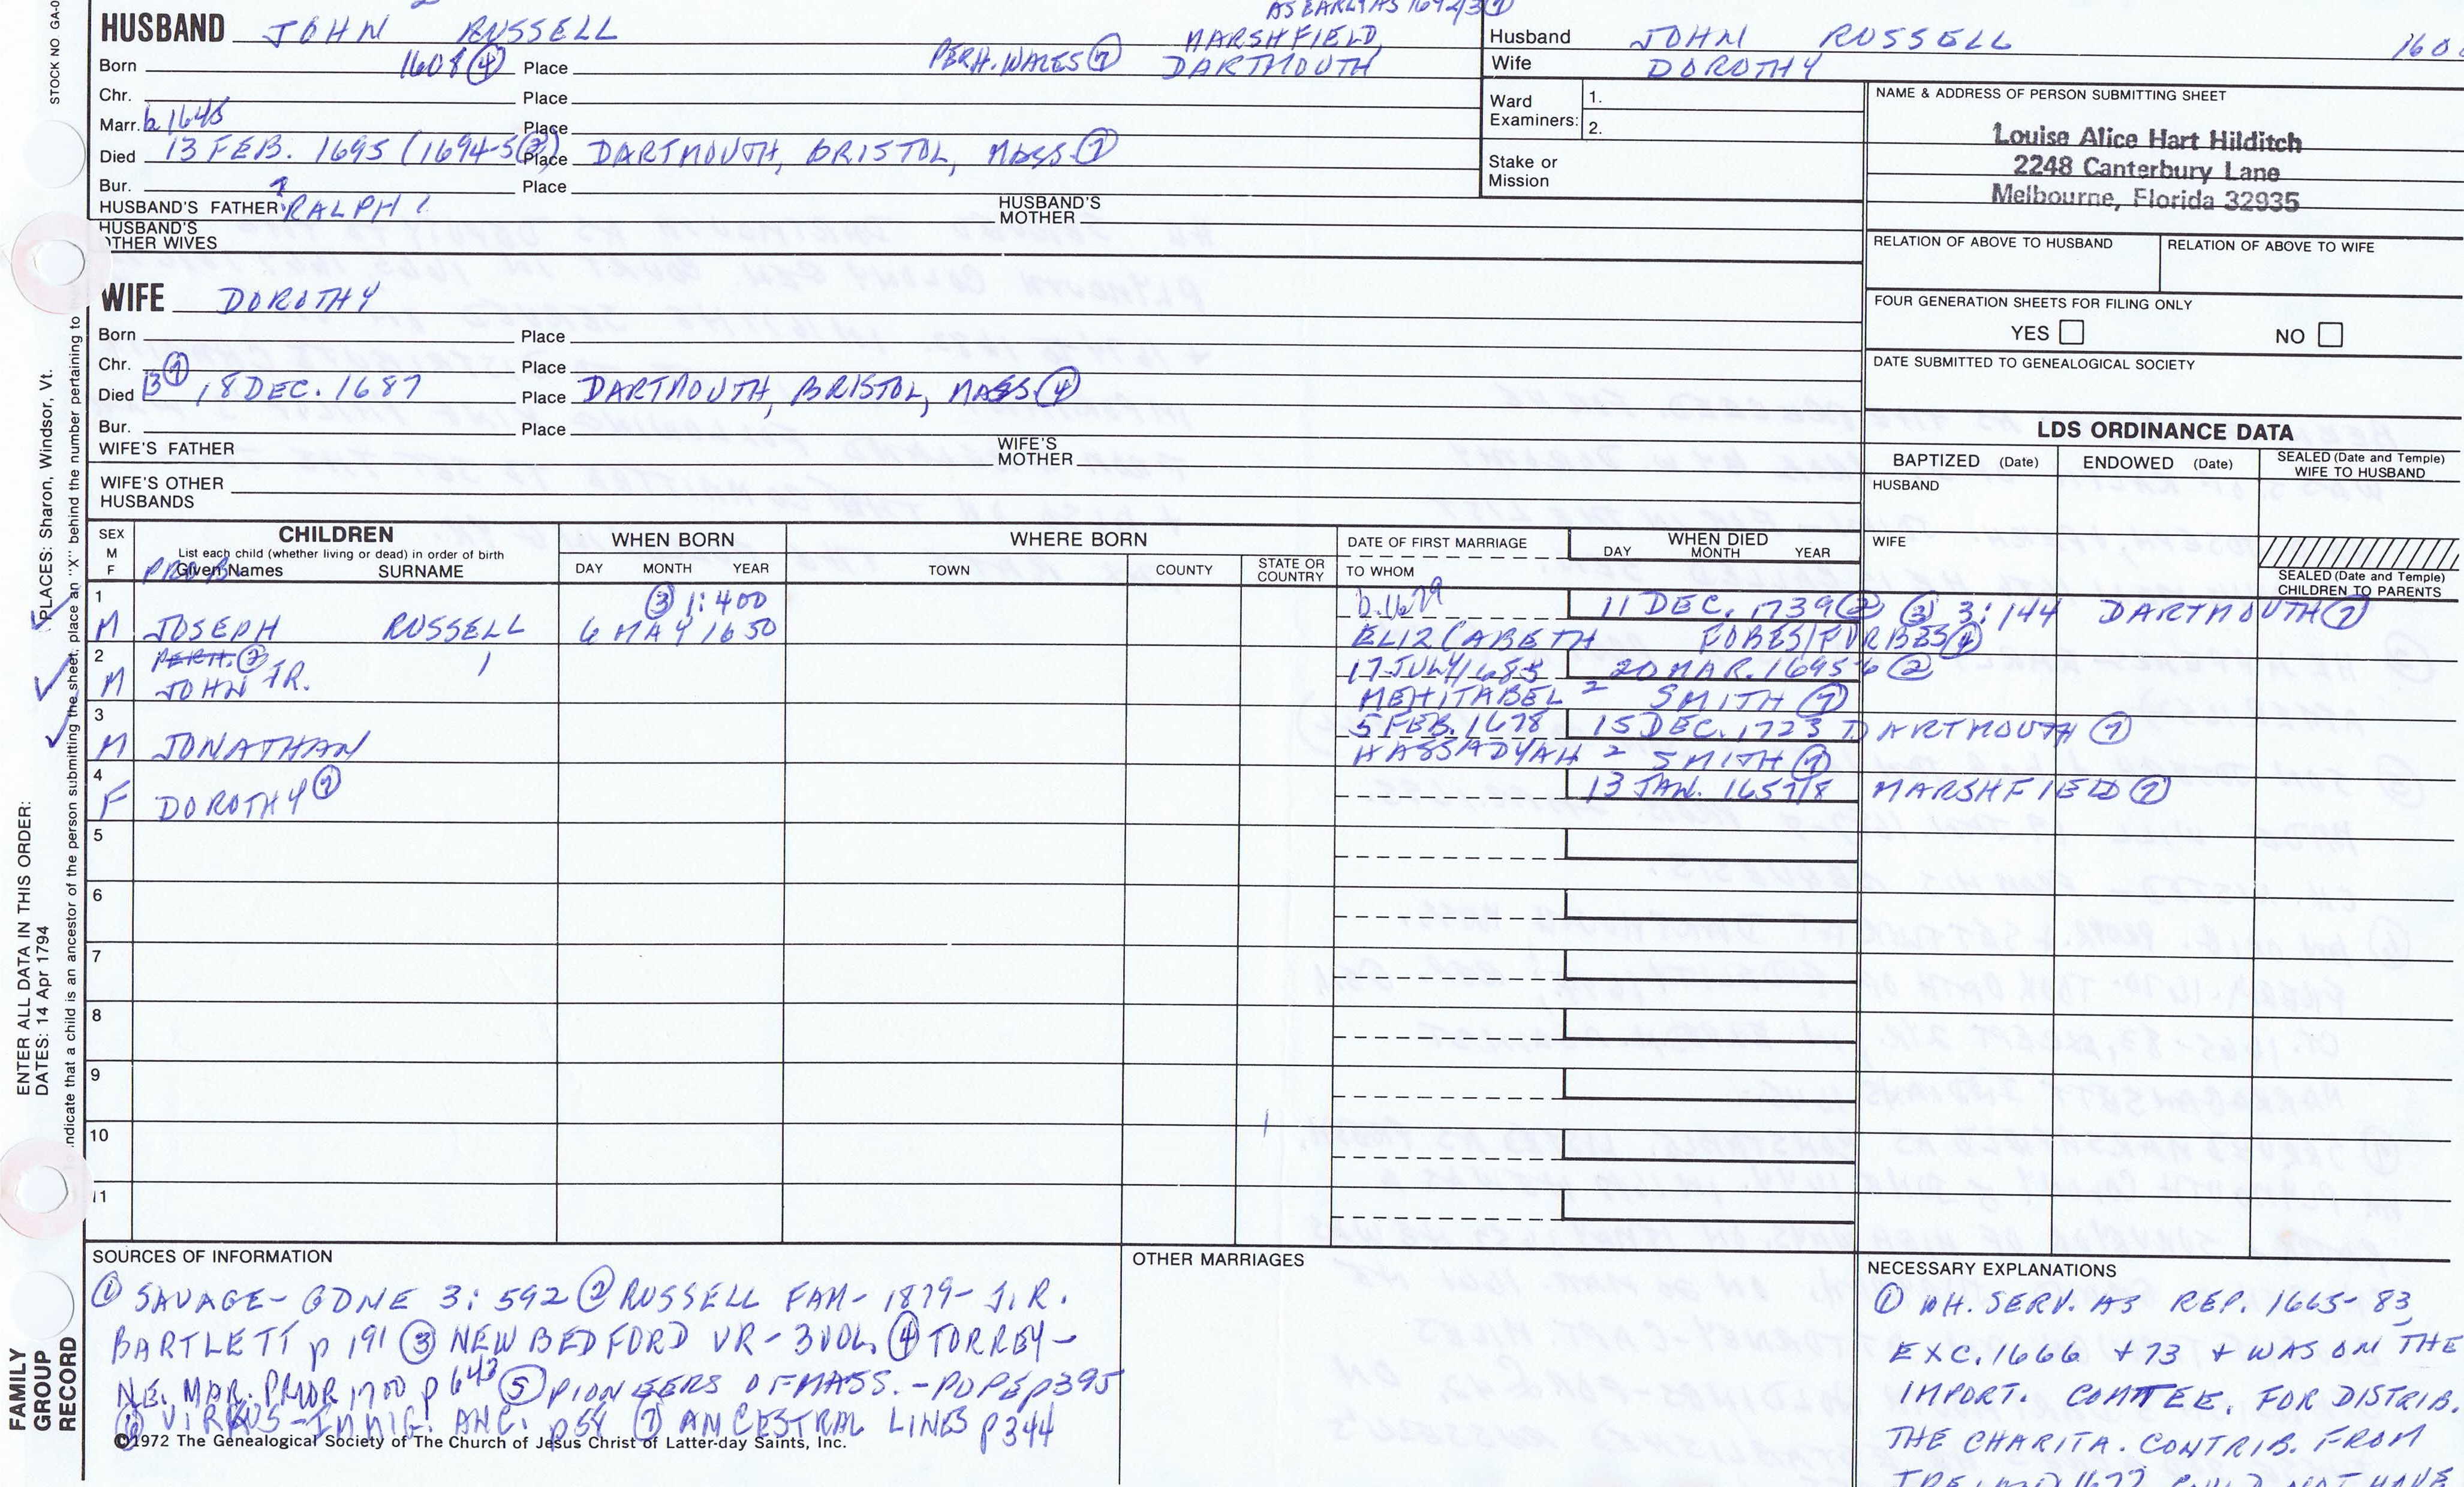 AS EARLY AS 1642/3 ⑦
HUSBAND JOHN RUSSELL
MARSHFIELD,
Born 1608 ④ Place PERH. WALES ⑦ DARTMOUTH
Chr. Place
Marr. b 1645 Place
Died 13 FEB. 1695 (1694-5 ②) Place DARTMOUTH, BRISTOL, MASS. ⑦
Bur. Place
HUSBAND'S FATHER ? RALPH ?
HUSBAND'S MOTHER
HUSBAND'S OTHER WIVES
Husband JOHN RUSSELL
Wife DOROTHY
Ward Examiners: 1.
2.
Stake or Mission
NAME & ADDRESS OF PERSON SUBMITTING SHEET
Louise Alice Hart Hilditch
2248 Canterbury Lane
Melbourne, Florida 32935
RELATION OF ABOVE TO HUSBAND
RELATION OF ABOVE TO WIFE
FOUR GENERATION SHEETS FOR FILING ONLY
YES NO
DATE SUBMITTED TO GENEALOGICAL SOCIETY
WIFE DOROTHY
Born Place
Chr. Place
Died B ⑦ 18 DEC. 1687 Place DARTMOUTH, BRISTOL, MASS ④
Bur. Place
WIFE'S FATHER
WIFE'S MOTHER
WIFE'S OTHER HUSBANDS
LDS ORDINANCE DATA
BAPTIZED (Date) ENDOWED (Date) SEALED (Date and Temple) WIFE TO HUSBAND
HUSBAND
WIFE
SEALED (Date and Temple) CHILDREN TO PARENTS
SEX M F
CHILDREN
List each child (whether living or dead) in order of birth
PROB. Given Names SURNAME
WHEN BORN
DAY MONTH YEAR
WHERE BORN
TOWN COUNTY STATE OR COUNTRY
DATE OF FIRST MARRIAGE
TO WHOM
WHEN DIED
DAY MONTH YEAR
1 ③ 1:400 b. 1679 11 DEC. 1739 ② ③ 3:144 DARTMOUTH ⑦
M JOSEPH RUSSELL 6 MAY 1650 ELIZ(ABETH FOBES/FORBES ④
2 PERH. ⑦ 17 JULY 1685 20 MAR. 1695-6 ②
M JOHN JR. MEHITABEL ² SMITH ⑦
3 5 FEB. 1678 15 DEC. 1723 DARTMOUTH ⑦
M JONATHAN HASSADYAH ² SMITH ⑦
4 13 JAN. 1657/8 MARSHFIELD ⑦
F DOROTHY ⑦
5
6
7
8
9
10
11
SOURCES OF INFORMATION
① SAVAGE- GDNE 3:592 ② RUSSELL FAM- 1879- J.R.
BARTLETT p 191 ③ NEW BEDFORD VR- 3 VOL. ④ TORREY-
NE. MAR. PRIOR 1700 p 643 ⑤ PIONEERS OF MASS. - POPE p395
⑥ VIRKUS- IMMIG. ANC. p58 ⑦ ANCESTRAL LINES p344
©1972 The Genealogical Society of The Church of Jesus Christ of Latter-day Saints, Inc.
OTHER MARRIAGES
NECESSARY EXPLANATIONS
① WH. SERV. AS REP. 1665-83,
EXC. 1666 + 73 + WAS ON THE
IMPORT. COMTEE. FOR DISTRIB.
THE CHARITA. CONTRIB. FROM
IRELAND 1677 COULD NOT HAVE
STOCK NO. GA-0
PLACES: Sharon, Windsor, Vt.
ndicate that a child is an ancestor of the person submitting the sheet, place an "X" behind the number pertaining to
ENTER ALL DATA IN THIS ORDER:
DATES: 14 Apr 1794
FAMILY
GROUP
RECORD